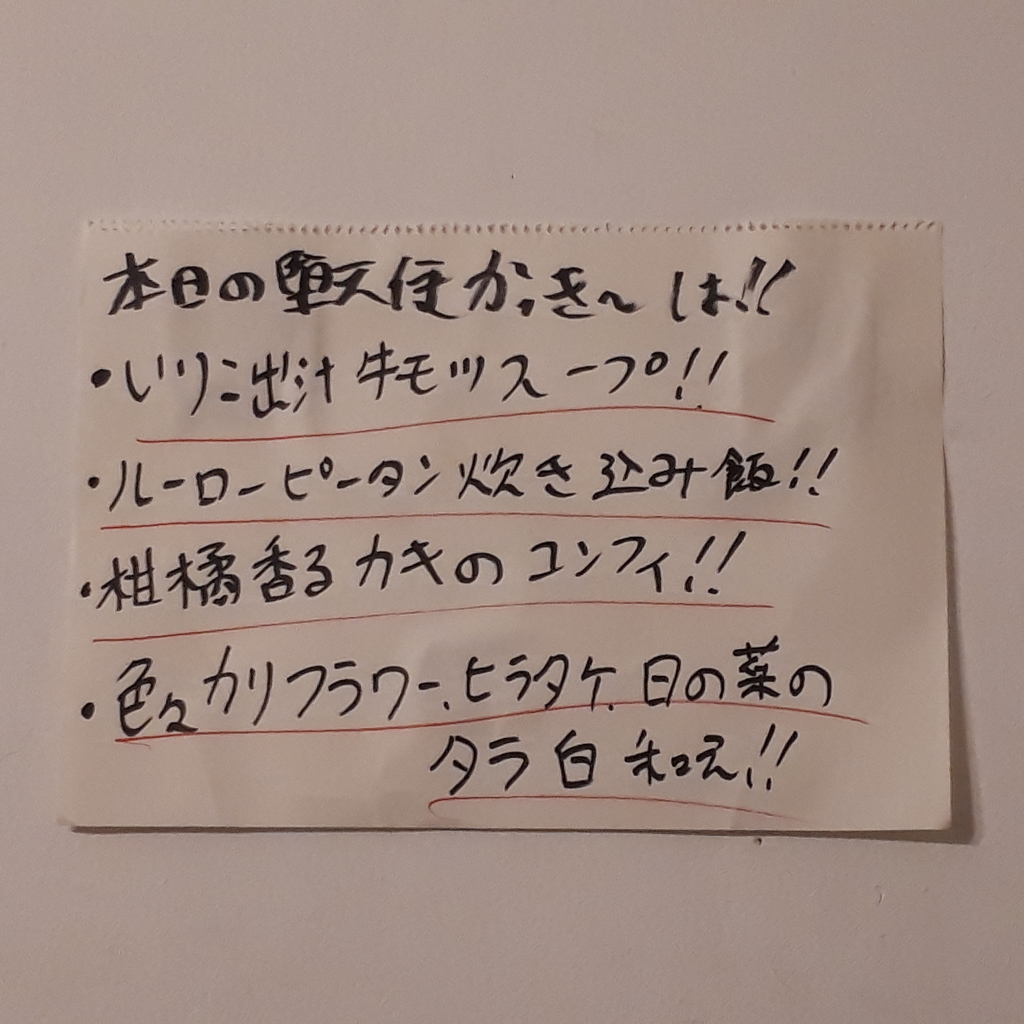 本日の堕天使かっき〜は!!
・いりこ出汁牛モツスープ!!
・ルーローピータン炊き込み飯!!
・柑橘香るカキのコンフィ!!
・色々カリフラワー、ヒラタケ、日の菜の
タラ白和え!!